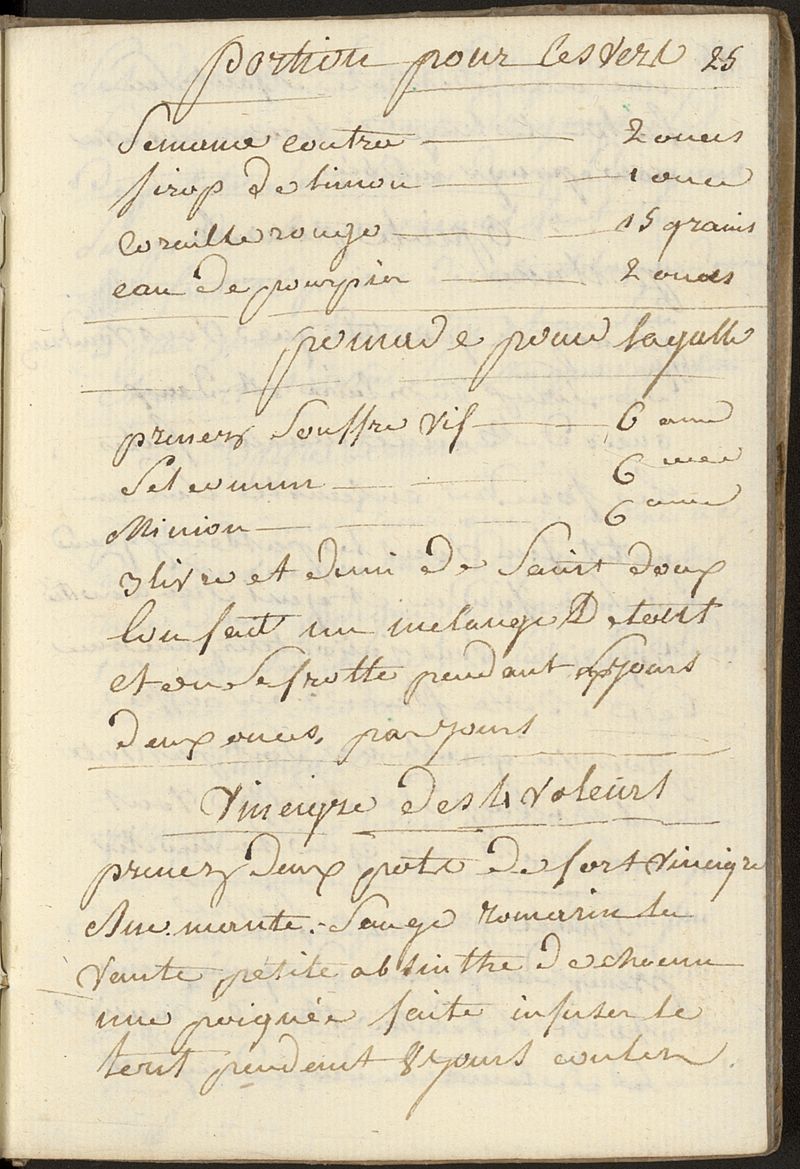 portion pour les vert 25
Semance contre 2 onces
sirop de limon 1 once
Coraille rouge 15 grains
eau de pourpier 2 onces
pomade pour la galle
prenez Souffre vif 6 once
Sel comun 6 once
Minion 6 once
3 livre et demi de Saint doux
lon fait un melange De tout
et on se frotte pendant jours
deux onces, par jours
Vineigre des 4 voleurs
prenez deux pots de fort vineigre
Rue. mante. Sauge romarin la
vante petite absinthe de chacun
une poignée faite infuser le
tout pendent 8 jours couler